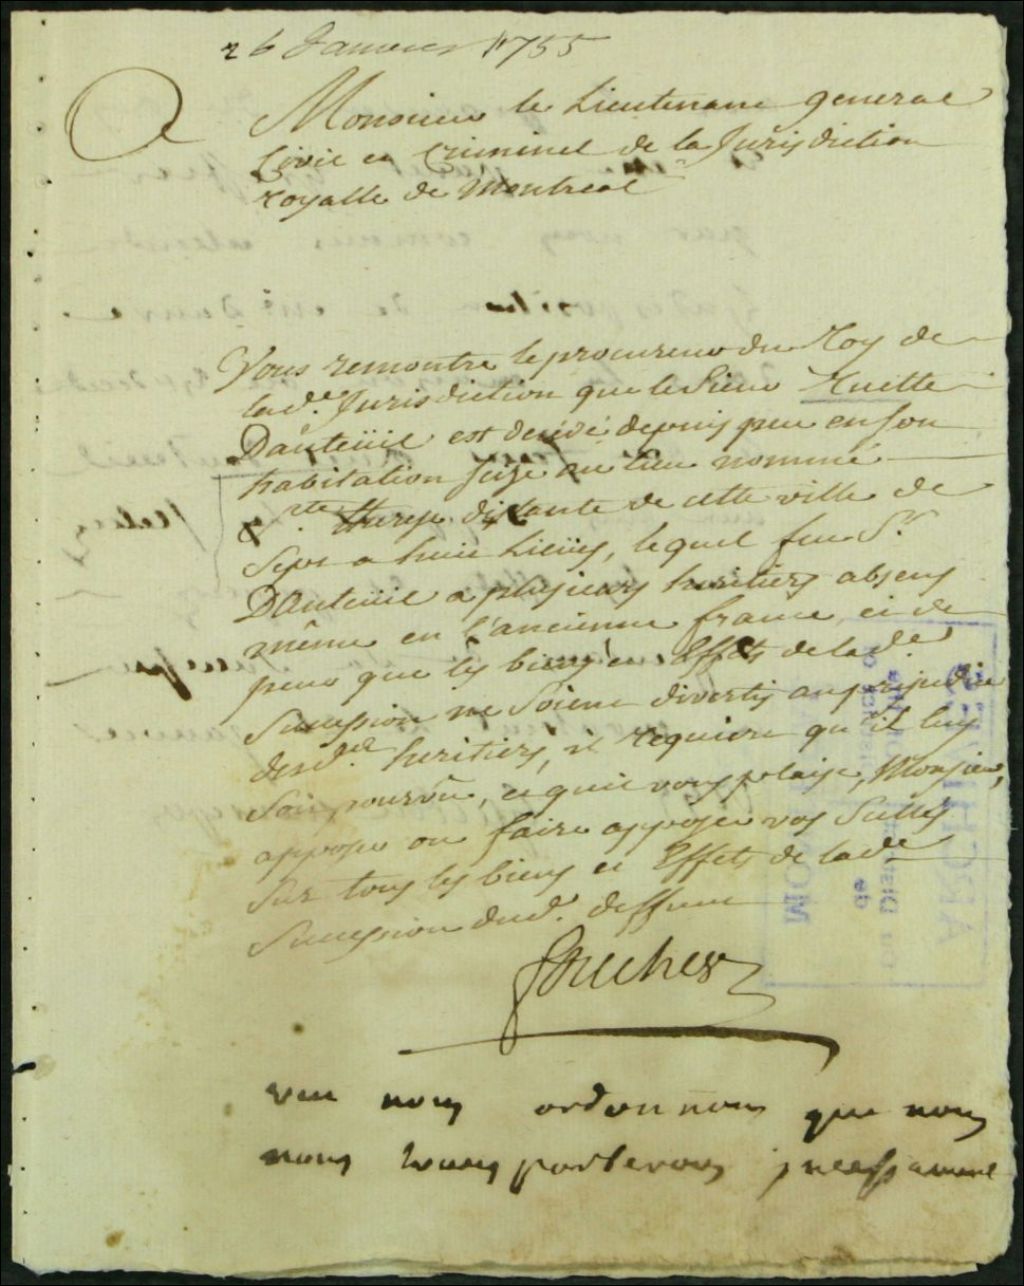 26 Janvier 1755
A Monsieur le Lieutenant general
Civil et Criminel de la Jurisdiction
royalle de Montreal
Vous remontre le procureur du Roy de
lad.e Jurisdiction que le Sieur Ruette
D'auteüil est decédé depuis peu en son
habitation sise au lieu nommé
S.te therese distante de cette ville de
Sept a huit Lieües, lequel feu S.r
D'Auteüil a plusieurs heritiers absens
même en l'ancienne france, et de
peur que les biens et Effets de lad.e
Succession ne Soient divertis au préjudice
desd.s heritiers, il requiert qu'il luy
Soit pourvû, et qu'il vous plaise, Monsieur,
apposer ou faire apposer vos Scellés
Sur tous les biens et Effets de lad.e
Succession dud.t deffunt
Foucher
veu nous ordonnons que nous
nous transporterons incessament
ARCHIVES
du District
de
MONTREAL